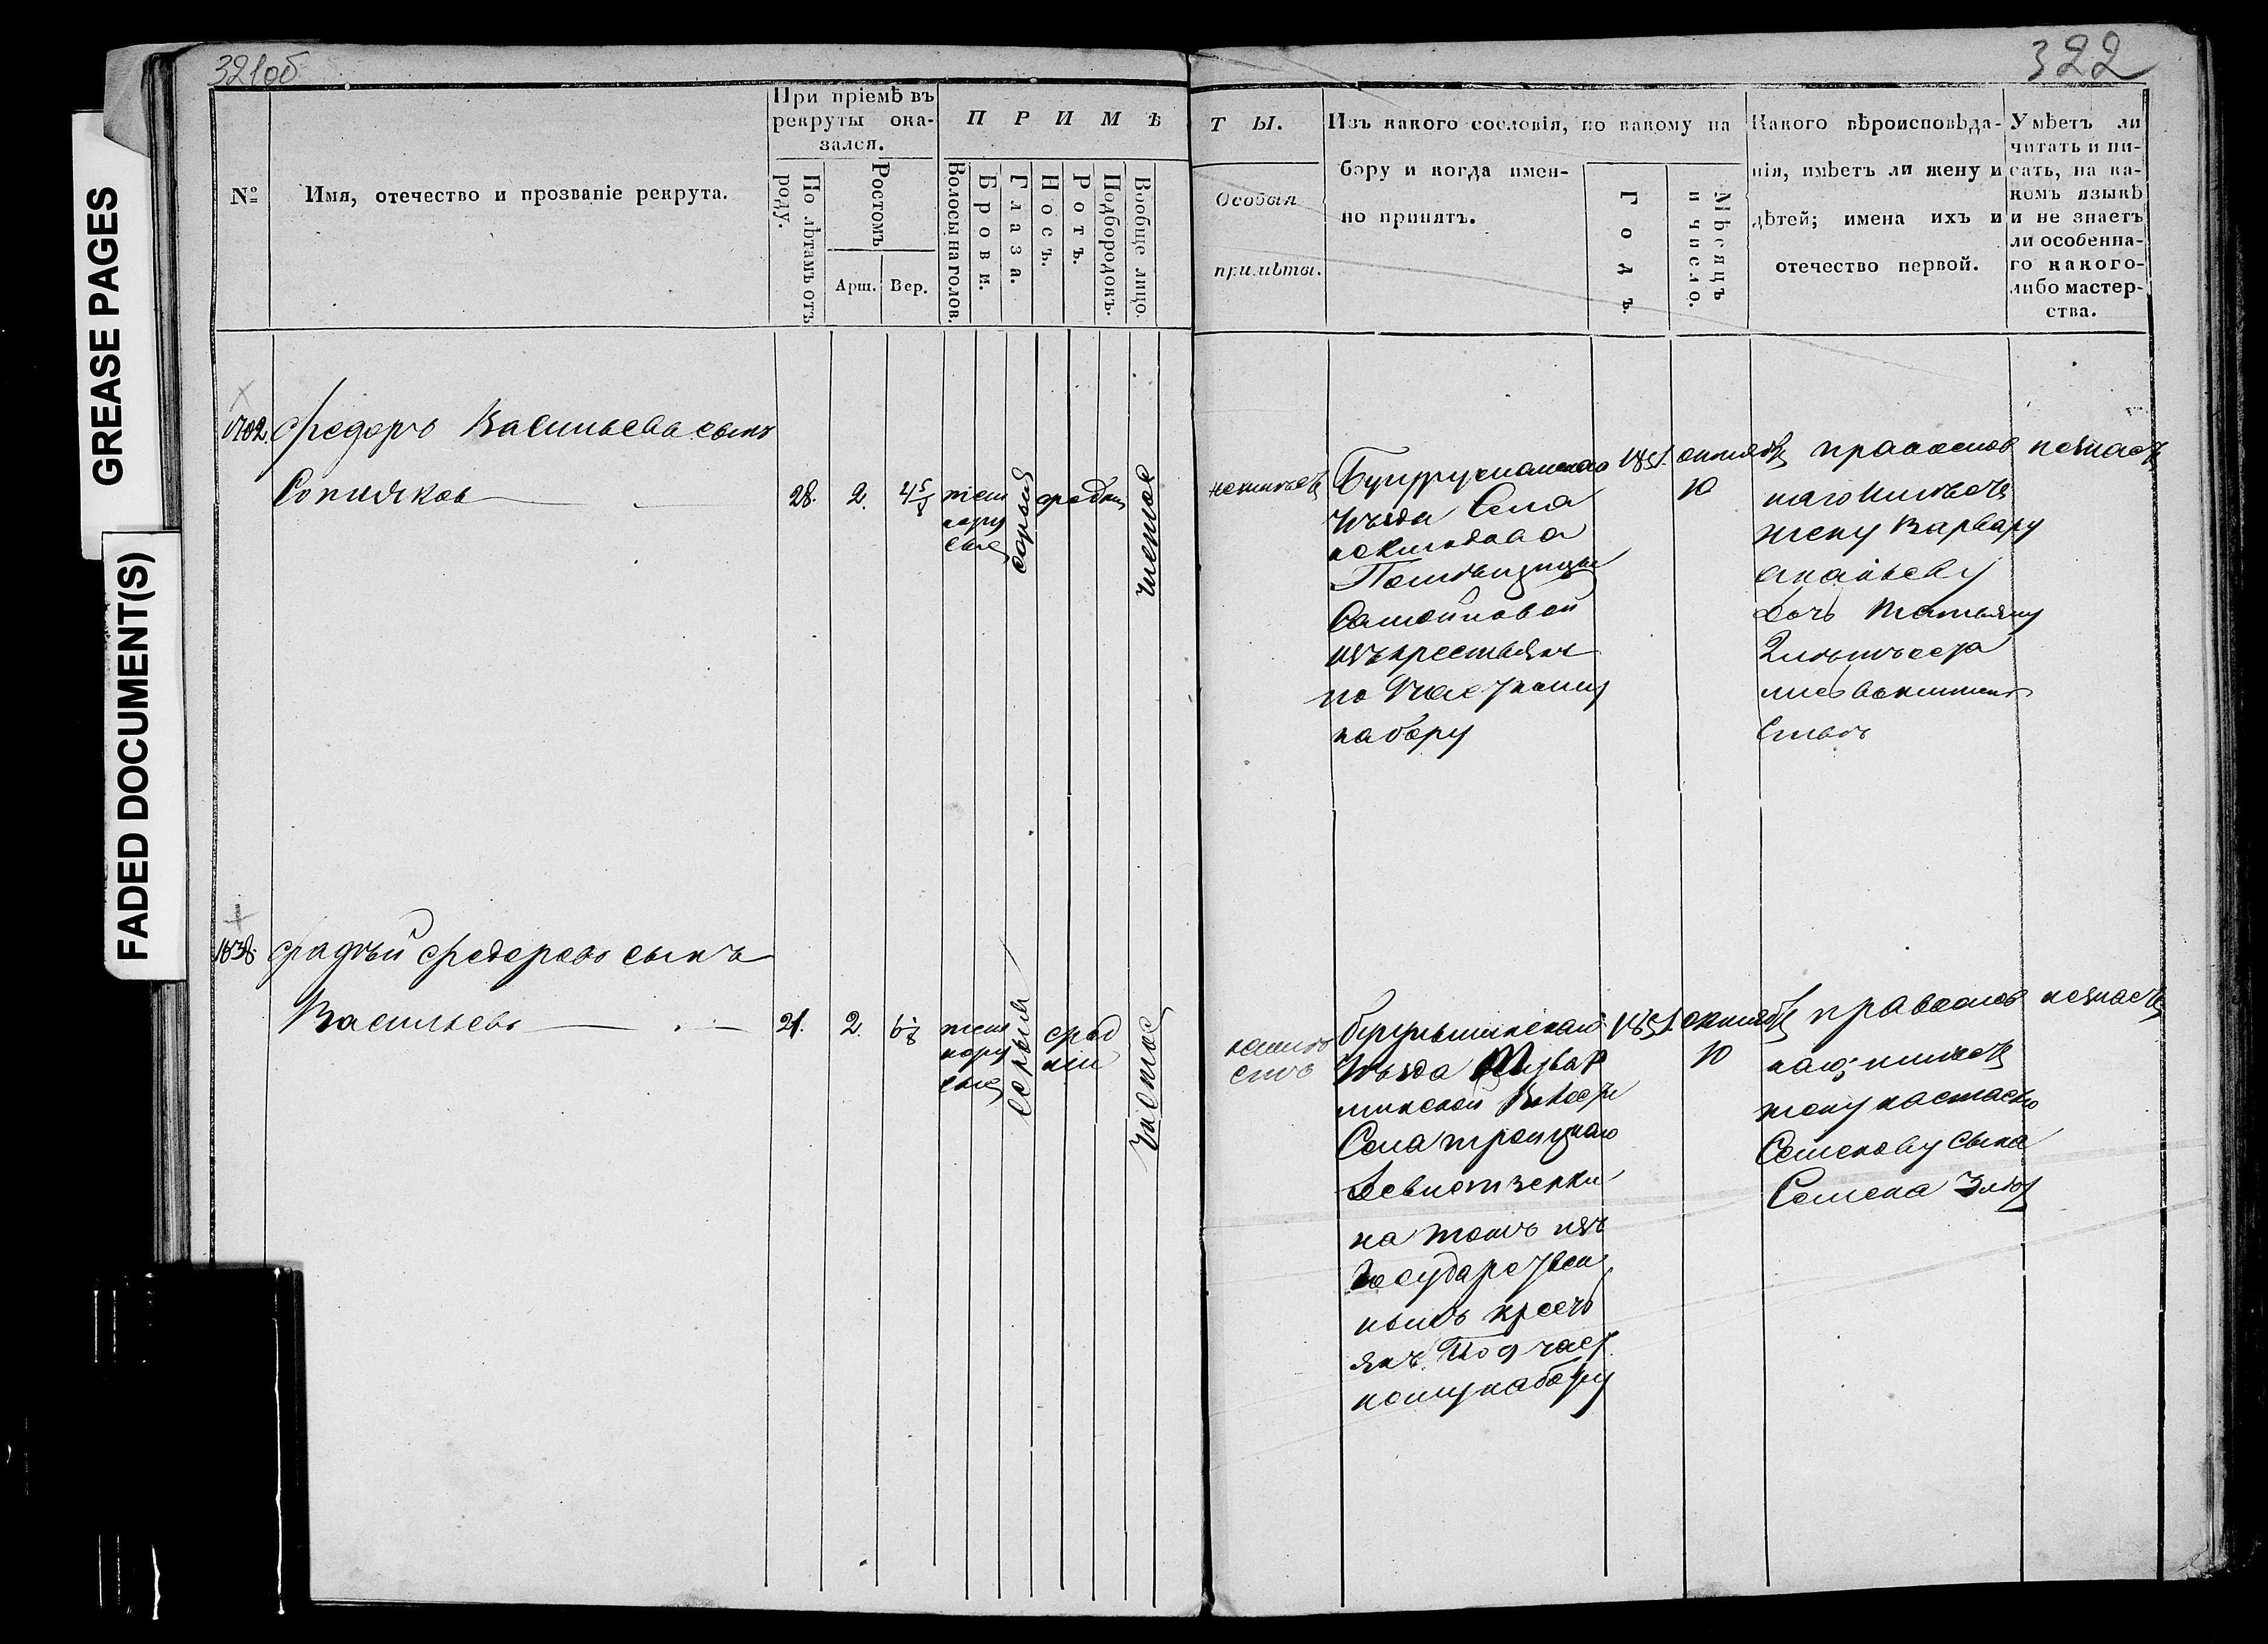 321об
322
GREASE PAGES
FADED DOCUMENT(S)
№
Имя, отечество и прозваніе рекрута.
При пріемѣ въ
рекруты ока-
зался.
По лѣтамъ отъ
роду.
Ростомъ
Арш.
Вер.
П Р И М Ѣ
Волосы на голов.
Брови.
Глаза.
Носъ.
Ротъ.
Подбородокъ.
Вообще лицо.
Т Ы.
Особыя
примѣты.
Изъ какого сословія, по какому на
бору и когда имен-
но принятъ.
Годъ.
Мѣсяцъ
и число.
Какого вѣроисповѣда-
нія, имѣетъ ли жену и
дѣтей; имена ихъ и
отечество первой.
Умѣетъ ли
читать и пи-
сать, на ка-
комъ языкѣ
и не знаетъ
ли особенна-
го какого-
либо мастер-
ства.
1702.
Федоръ Васильевъ сынъ
28.
2.
4 5/8
темн
орусые
серыя
средн
чистое
неимѣетъ
Бугурусланскаго
уѣзда Села
Помѣщицы
Самойловой
изъ крестьянъ
набору
1851.
октября
10
православ
наго имѣетъ
жену Варвару
дочь Татьяну
незнаетъ
1838.
Фадѣй Федоровъ сынъ
Васильевъ
21.
2.
6 1/8
темн
орусые
серыя
сред
ніи
чистое
Бугульминскаго
уѣзда
Села троицкаго
на томъ изъ
Государствен
ныхъ крест
янъ. По 9 част
ному набору
1851.
октября
10
православ
имѣетъ
жену настасью
Семенову сына
Семена
незнаетъ